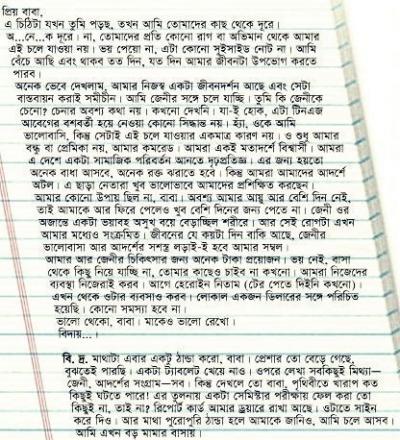 প্রিয় বাবা,
এ চিঠিটা যখন তুমি পড়ছ, তখন আমি তোমাদের কাছ থেকে দূরে।
অ...নে...ক দূরে। না, তোমাদের প্রতি কোনো রাগ বা অভিমান থেকে আমার
এই চলে যাওয়া নয়। ভয় পেয়ো না, এটা কোনো সুইসাইড নোট না। আমি
বেঁচে আছি এবং থাকব তত দিন, যত দিন আমার জীবনটা উপভোগ করতে
পারব।
অনেক ভেবে দেখলাম, আমার নিজস্ব একটা জীবনদর্শন আছে এবং সেটা
বাস্তবায়ন করাই সমীচীন। আমি জেনীর সঙ্গে চলে যাচ্ছি। তুমি কি জেনীকে
চেনো? চেনার অবশ্য কথা নয়। কখনো দেখনি। যা-ই হোক, এটা টিনএজ
আবেগের বশবর্তী হয়ে নেওয়া কোনো সিদ্ধান্ত নয়। হ্যাঁ, ওকে আমি
ভালোবাসি, কিন্তু সেটাই এই চলে যাওয়ার একমাত্র কারণ নয়। ও শুধু আমার
বন্ধু বা প্রেমিকা নয়, আমার কমরেড। আমরা একই মতাদর্শে বিশ্বাসী। আমরা
এ দেশে একটা সামাজিক পরিবর্তন আনতে দৃঢ়প্রতিজ্ঞ। এর জন্য হয়তো
অনেক বাধা আসবে, অনেক রক্ত ঝরাতে হবে। কিন্তু আমরা আমাদের আদর্শে
অটল। এ ছাড়া নেতারা খুব ভালোভাবে আমাদের প্রশিক্ষিত করছেন।
আমার কোনো উপায় ছিল না, বাবা। অবশ্য আমার আয়ু আর বেশি দিন নেই,
তাই আমাকে আর ফিরে পেলেও খুব বেশি দিনের জন্য পেতে না। জেনী ওর
অজান্তে একটা ভয়াবহ অসুখ বয়ে বেড়াচ্ছিল শরীরে। আর সেই রোগটা এখন
আমার মধ্যেও সংক্রমিত। জীবনের যে কয়টা দিন বাকি আছে, জেনীর
ভালোবাসা আর আদর্শের সশস্ত্র লড়াই-ই হবে আমার সম্বল।
আমার আর জেনীর চিকিৎসার জন্য অনেক টাকা প্রয়োজন। ভয় নেই, বাসা
থেকে কিছু নিয়ে যাচ্ছি না, তোমার কাছেও চাইব না কখনো। আমরা নিজেদের
ব্যবস্থা নিজেরাই করব। আগে হেরোইন নিতাম (টের পেতে দিইনি কখনো)।
এখন থেকে ওটার ব্যবসাও করব। লোকাল একজন ডিলারের সঙ্গে পরিচিত
হয়েছি। কোনো সমস্যা হবে না।
ভালো থেকো, বাবা। মাকেও ভালো রেখো।
বিদায়...।
বি. দ্র. মাথাটা এবার একটু ঠান্ডা করো, বাবা। প্রেশার তো বেড়ে গেছে,
বুঝতেই পারছি। একটা ট্যাবলেট খেয়ে নাও। ওপরে লেখা সবকিছুই মিথ্যা—
জেনী, আদর্শের সংগ্রাম—সব। কিন্তু দেখলে তো বাবা, পৃথিবীতে খারাপ কত
কিছুই ঘটতে পারে! এর তুলনায় একটা সেমিস্টার পরীক্ষায় ফেল করা তো
কিছুই না, তাই না? রিপোর্ট কার্ড আমার ড্রয়ারে রাখা আছে। ওটাতে সাইন
করে দিও। আর মাথা পুরোপুরি ঠান্ডা হলে আমাকে জানিও, আমি চলে আসব।
আমি এখন বড় মামার বাসায়।